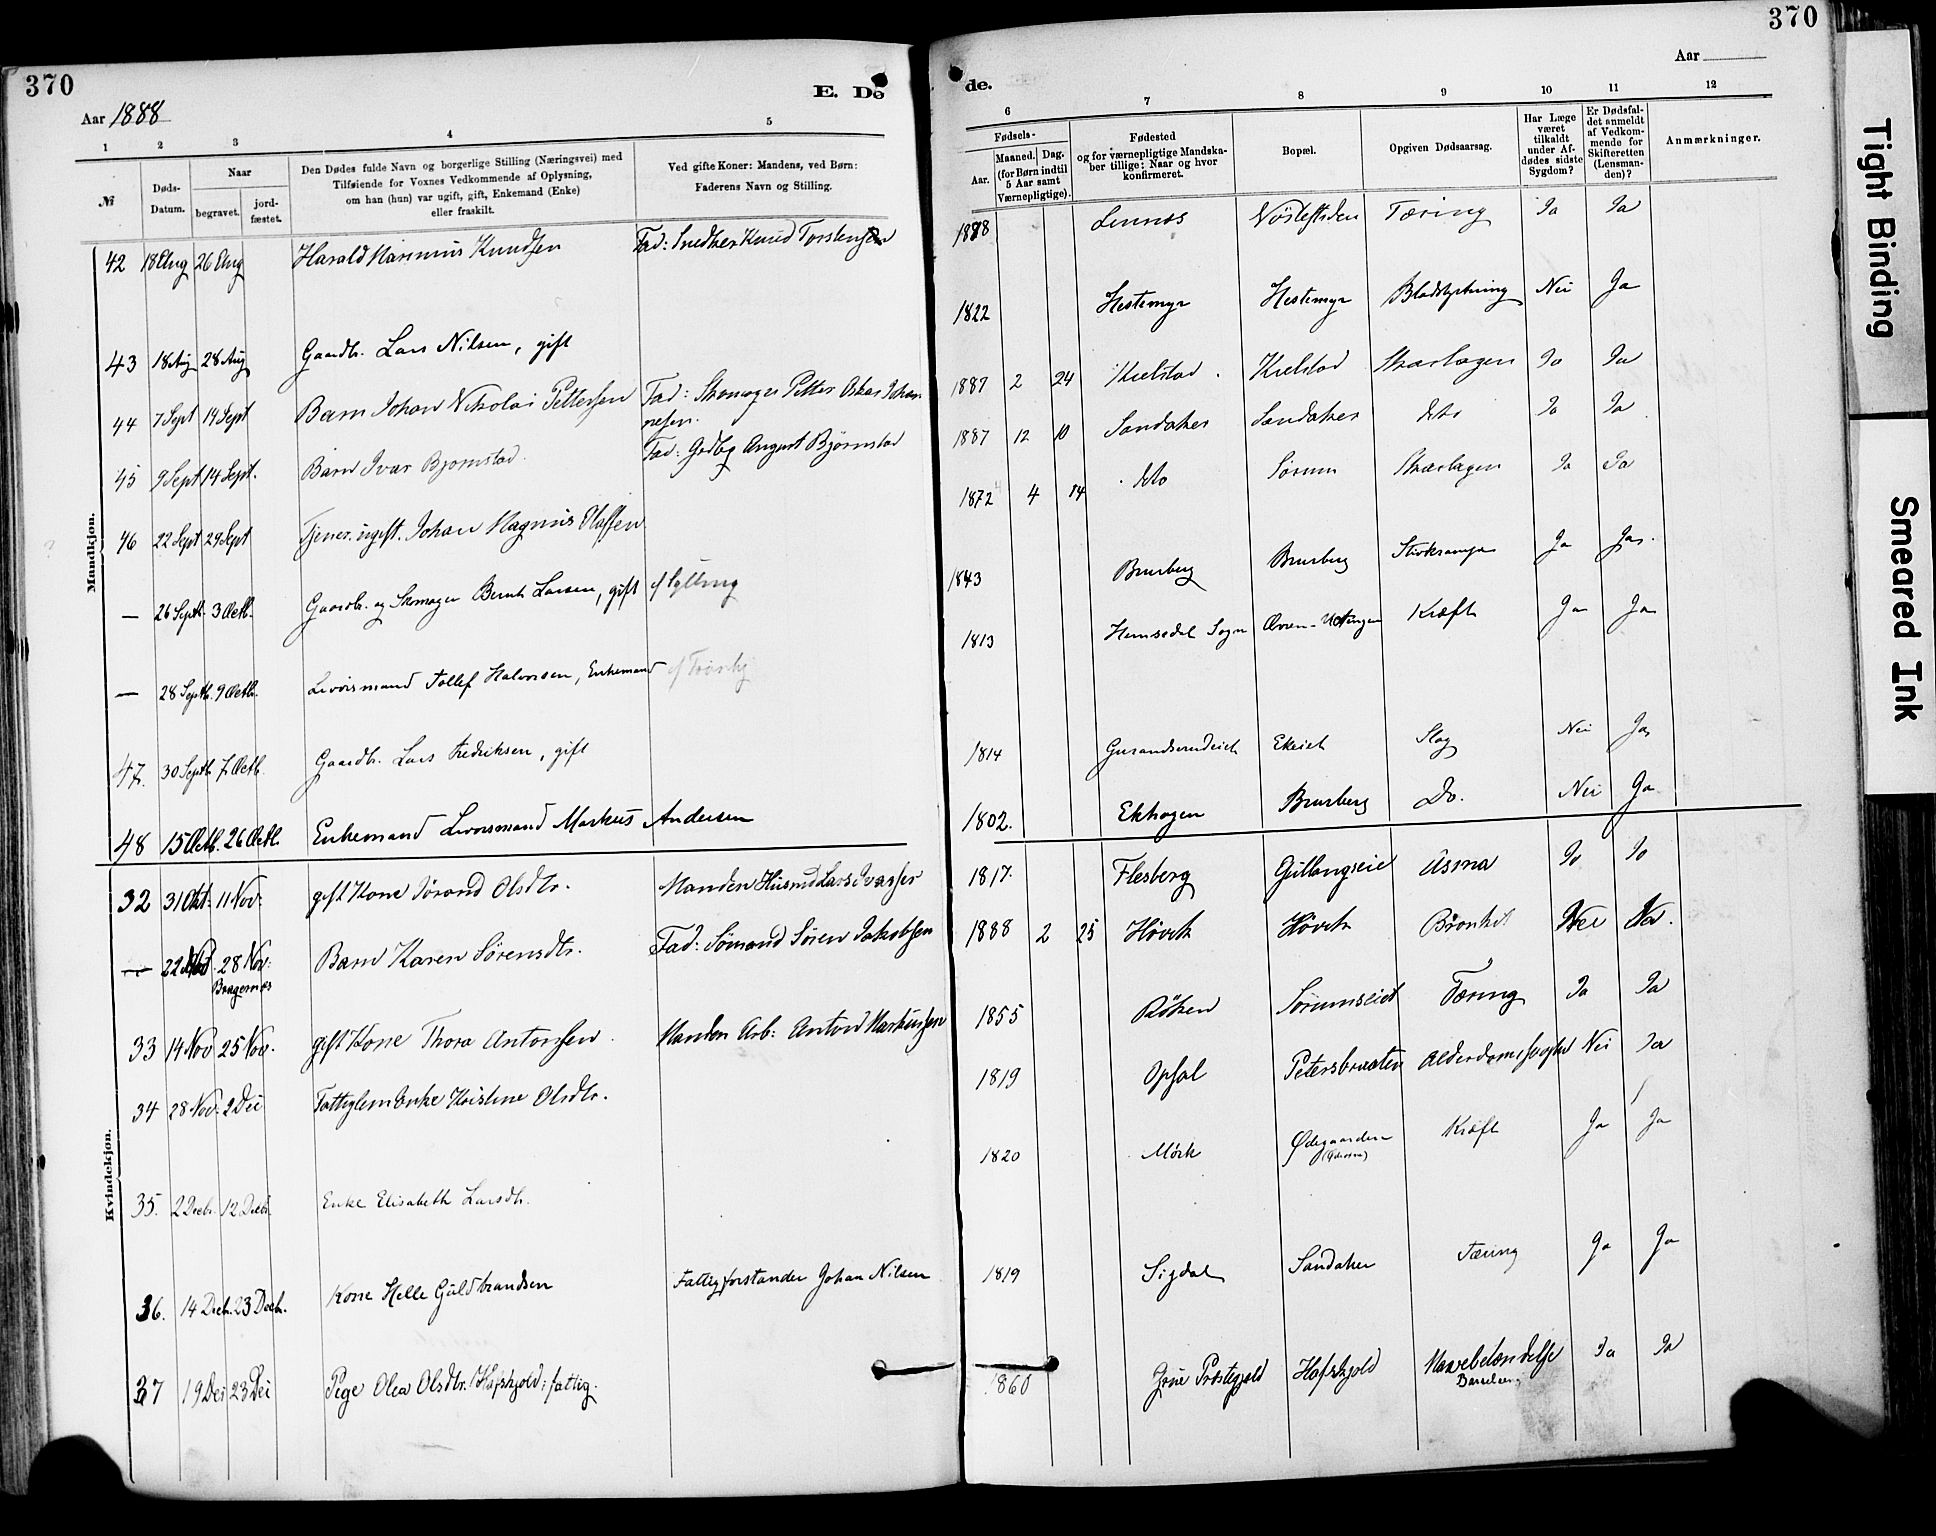 370
E. Dø
Aar 1888
1 2 3 4 5
№
Døds-
Datum.
Naar
begravet.
jord-
fæstet.
Den Dødes fulde Navn og borgerlige Stilling (Næringsvei) med
Tilføiende for Voxnes Vedkommende af Oplysning,
om han (hun) var ugift, gift, Enkemand (Enke)
eller fraskilt.
Ved gifte Koner: Mandens, ved Børn:
Faderens Navn og Stilling.
Mandkjøn.
42 18 Aug 26 Aug Harald Marinius Knudsen Fad: Snedker Knud Torstensen
43 18 Aug 28 Aug Gaardbr. Lars Nilsen, gift
44 7 Sept 14 Sept Barn Johan Nikolai Pettersen Fad: Skomager Petter Oskar Johan-
nesen.
45 9 Sept 14 Sept. Barn Ivar Bjørnstad. Fad: Gbdbg August Bjørnstad
46 22 Sept 29 Sept Tjener. ugift. Johan Magnus Olafsen
— 26 Septb. 3 Octb. Gaardbr. og Skomager Bernt Larsen, gift af Sylling
— 28 Septb. 9 Octb. Livørsmand Tollef Halvorsen, Enkemand
47. 30 Septb 7 Octb. Gaardbr. Lars Fredriksen, gift
48 15 Octb. 26 Octb. Enkemand Livørsmand Markus Andersen
Kvindekjøn.
32 31 Okt. 11 Nov. gift Kone Jørand Olsdtr. Manden Husmd Lars Ivarsen
— 22 Nov 28 Nov: Barn Karen Sørensdtr. Fad: Sømand Søren Jakobsen
Bragernæs
33 14 Nov 25 Nov. gift Kone Thora Antonsen. Manden Arb: Anton Markussen
34 28 Nov. 2 Dec Fattiglem Enke Kristine Olsdtr.
35. 2 Decb. 12 Decb. Enke Elisabeth Larsdtr.
36. 14 Decb. 23 Decb. Kone Helle Guldbrandsen Fattigforstander Johan Nilsen
37 19 Dec 23 Dec Pige Olea Olsdtr. Hafskjold: fattig.
370
de.
Aar
6 7 8 9 10 11 12
Fødsels-
Aar.
Maaned. Dag.
(for Børn indtil
5 Aar samt
Værnepligtige).
Fødested
og for værnepligtige Mandska-
ber tillige: Naar og hvor
konfirmeret.
Bopæl.
Opgiven Dødsaarsag.
Har Læge
været
tilkaldt
under Af-
dødes sidste
Sygdom?
Er Dødsfal-
det anmeldt
af Vedkom-
mende for
Skifteretten
(Lensman-
den)?
Anmærkninger.
1888 Lennes Tæring Ja Ja
1822 Hestemyr Hestemyr Blodstyrtning Nei Ja
1887 2 24 Kielstad Kielstad Skarlagen Ja Ja
1887 12 10 Sandaker Sandaker dto Ja Ja
1872 4 14 dto Sørum Skarlagen Ja Ja
1843 Brurberg Brurberg Stivkrampe Ja Ja.
1813 Hemsedal Sogn Kræft Ja Ja
1814 Ekeiet Slag Nei Ja
1802. Ekhagen Brurberg Do. Nei Ja
1817. Flesberg Gullaugseie Asma Ja Ja
1888 2 25 Høvik Høvik Bronkit Nei Ja.
1855 Røken Sørumseiet Tæring Ja Ja
1819 Opsal Petersbraaten Alderdomssvaghed Nei Ja
1820 Mørk Ødegaarden Kræft Ja Ja
1819 Sigdal Sandaker Tæring Ja Ja
1860 Hafskjold Ja Ja
Barselseng
Tight Binding
Smeared Ink